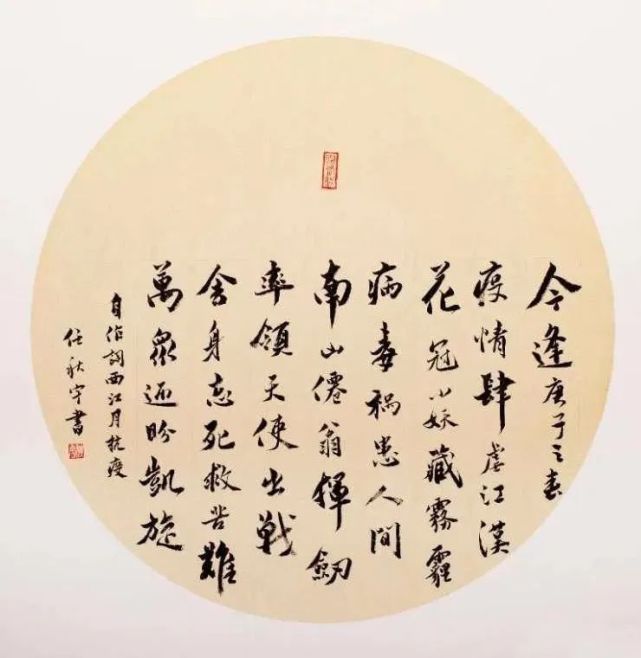 今逢庚子之春
疫情肆虐江漢
花冠小妖藏霧霾
病毒祸患人間
南山僊翁揮劒
率領天使出戰
舍身忘死救苦難
萬眾迎盼凱旋
自作詞西江月抗疫
任秋宇書